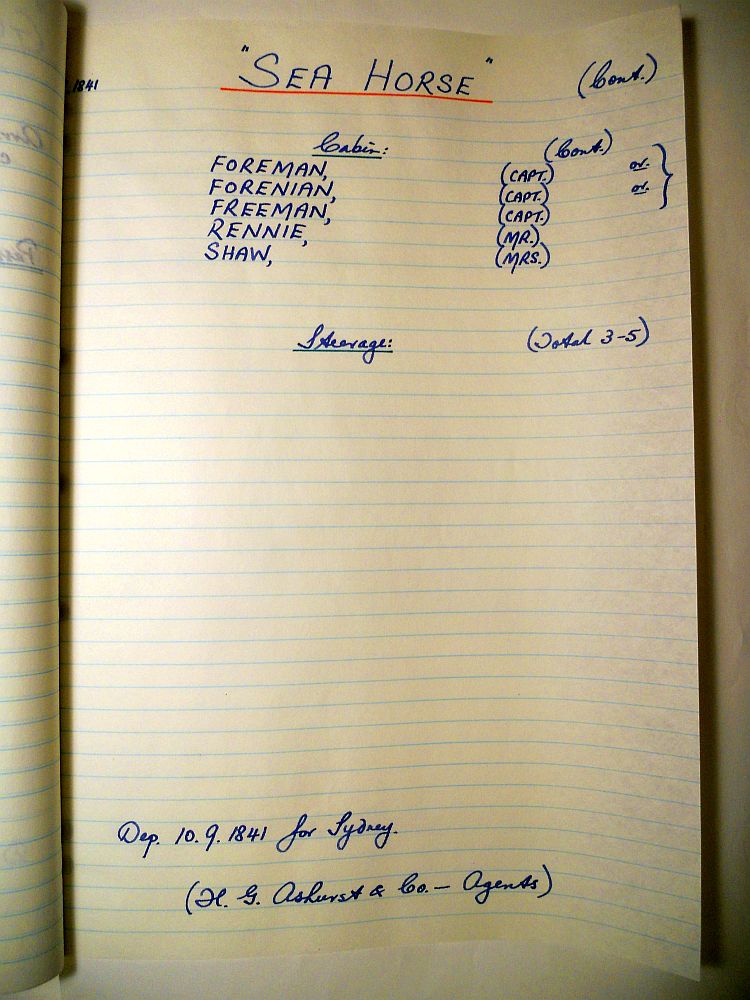 1841 "SEA HORSE" (Cont.)
Cabin: (Cont.)
FOREMAN, (CAPT.) or.
FORENIAN, (CAPT.) or.
FREEMAN, (CAPT.)
RENNIE, (MR.)
SHAW, (MRS.)
Steerage: (Total 3-5)
Dep. 10.9.1841 for Sydney.
(H. G. Ashurst & Co. — Agents)